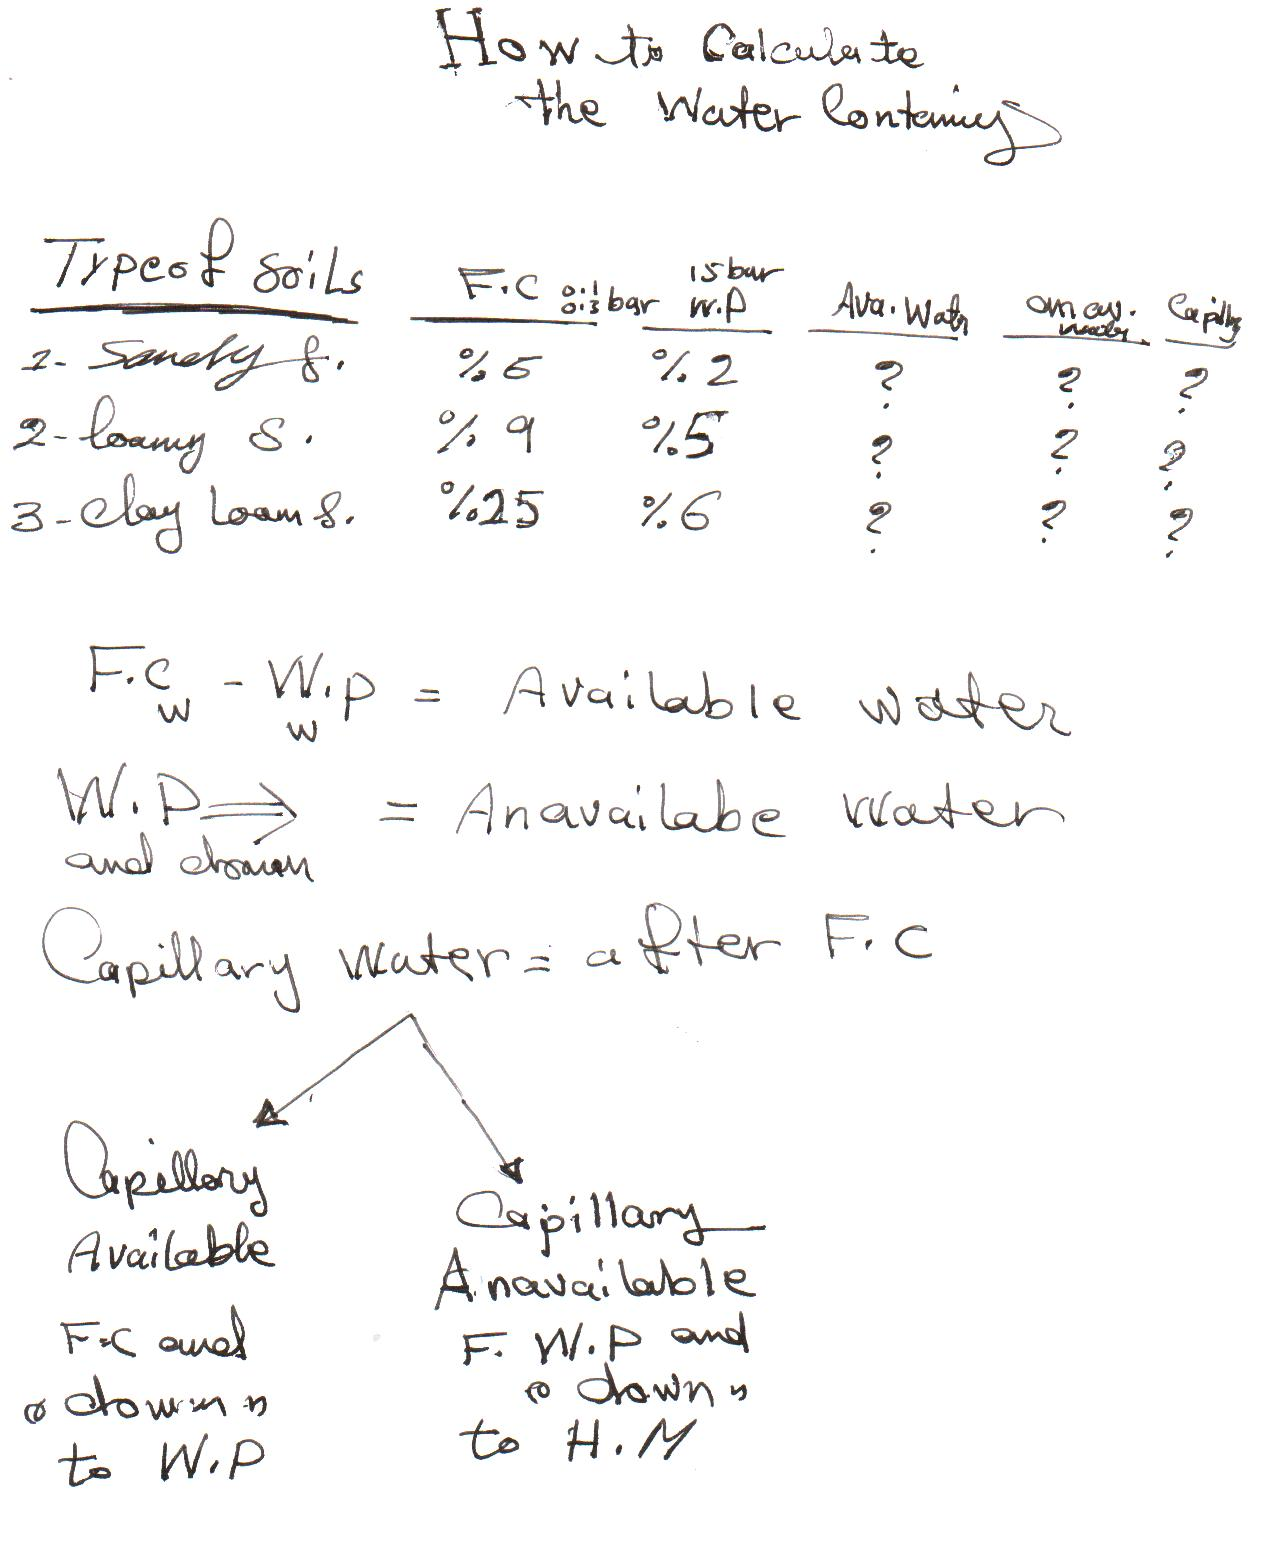 How to Calculate
the Water Containing
Type of Soils F.C 0.1 0.3 bar 15 bar W.P Ava. Water anav. water Capillary
1- Sandy S. %6 %2 ? ? ?
2- loamy S. %9 %5 ? ? ?
3- Clay Loam S. %25 %6 ? ? ?
F.C w - W.P w = Available water
W.P ⇒ = Anavailabe Water
and down
Capillary Water = after F.C
Capillary
Available
F.C and
down "
to W.P
Capillary
Anavailable
F. W.P and
down "
to H.M